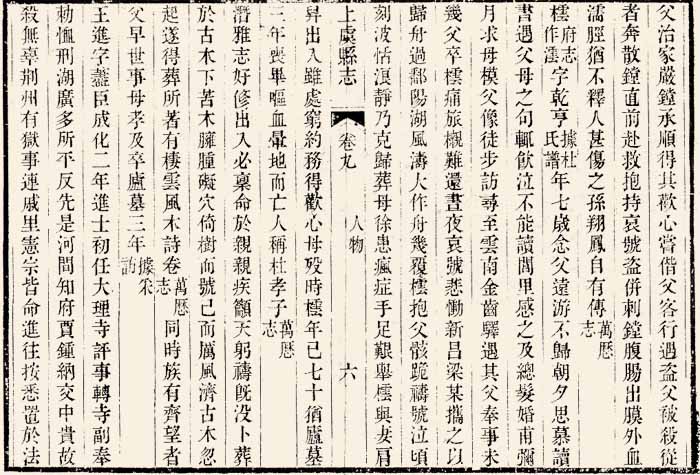 父治家嚴鏜承順得其歡心嘗偕父客行遇盜父被殺從
者奔散鏜直前赴救抱持哀號盜併刺鏜腹腸出膜外血
濡脛猶不釋人甚傷之孫翔鳳自有傳萬厯志
櫄府志作濡字乾亨據杜氏譜年七歲念父遠游不歸朝夕思慕讀
書遇父母之句輒飲泣不能讀閭里感之及總髮婚甫彌
月求母模父像徒步訪尋至雲南金齒驛遇其父奉事未
幾父卒櫄痛旅櫬難還晝夜哀號悲慟新昌梁某攜之以
歸舟過鄱陽湖風濤大作舟幾覆櫄抱父骸跪禱號泣頃
刻波恬浪靜乃克歸葬母徐患瘋症手足艱舉櫄與妻肩
上虞縣志 卷九 人物 六
舁出入雖處窮約務得歡心母歿時櫄年已七十猶廬墓
三年喪畢嘔血暈地而亡人稱杜孝子萬厯志
潛雅志好修出入必稟命於親親疾籲天躬禱旣没卜葬
於古木下苦木臃腫礙穴倚樹而號已而厲風濟古木忽
起遂得葬所著有棲雲風木詩卷萬厯志同時族有齊望者
父早世事母孝及卒廬墓三年據采訪
王進字藎臣成化二年進士初任大理寺評事轉寺副奉
勑恤刑湖廣多所平反先是河間知府賈鍾納交中貴故
殺無辜荆州有獄事連戚里憲宗皆命進往按悉置於法